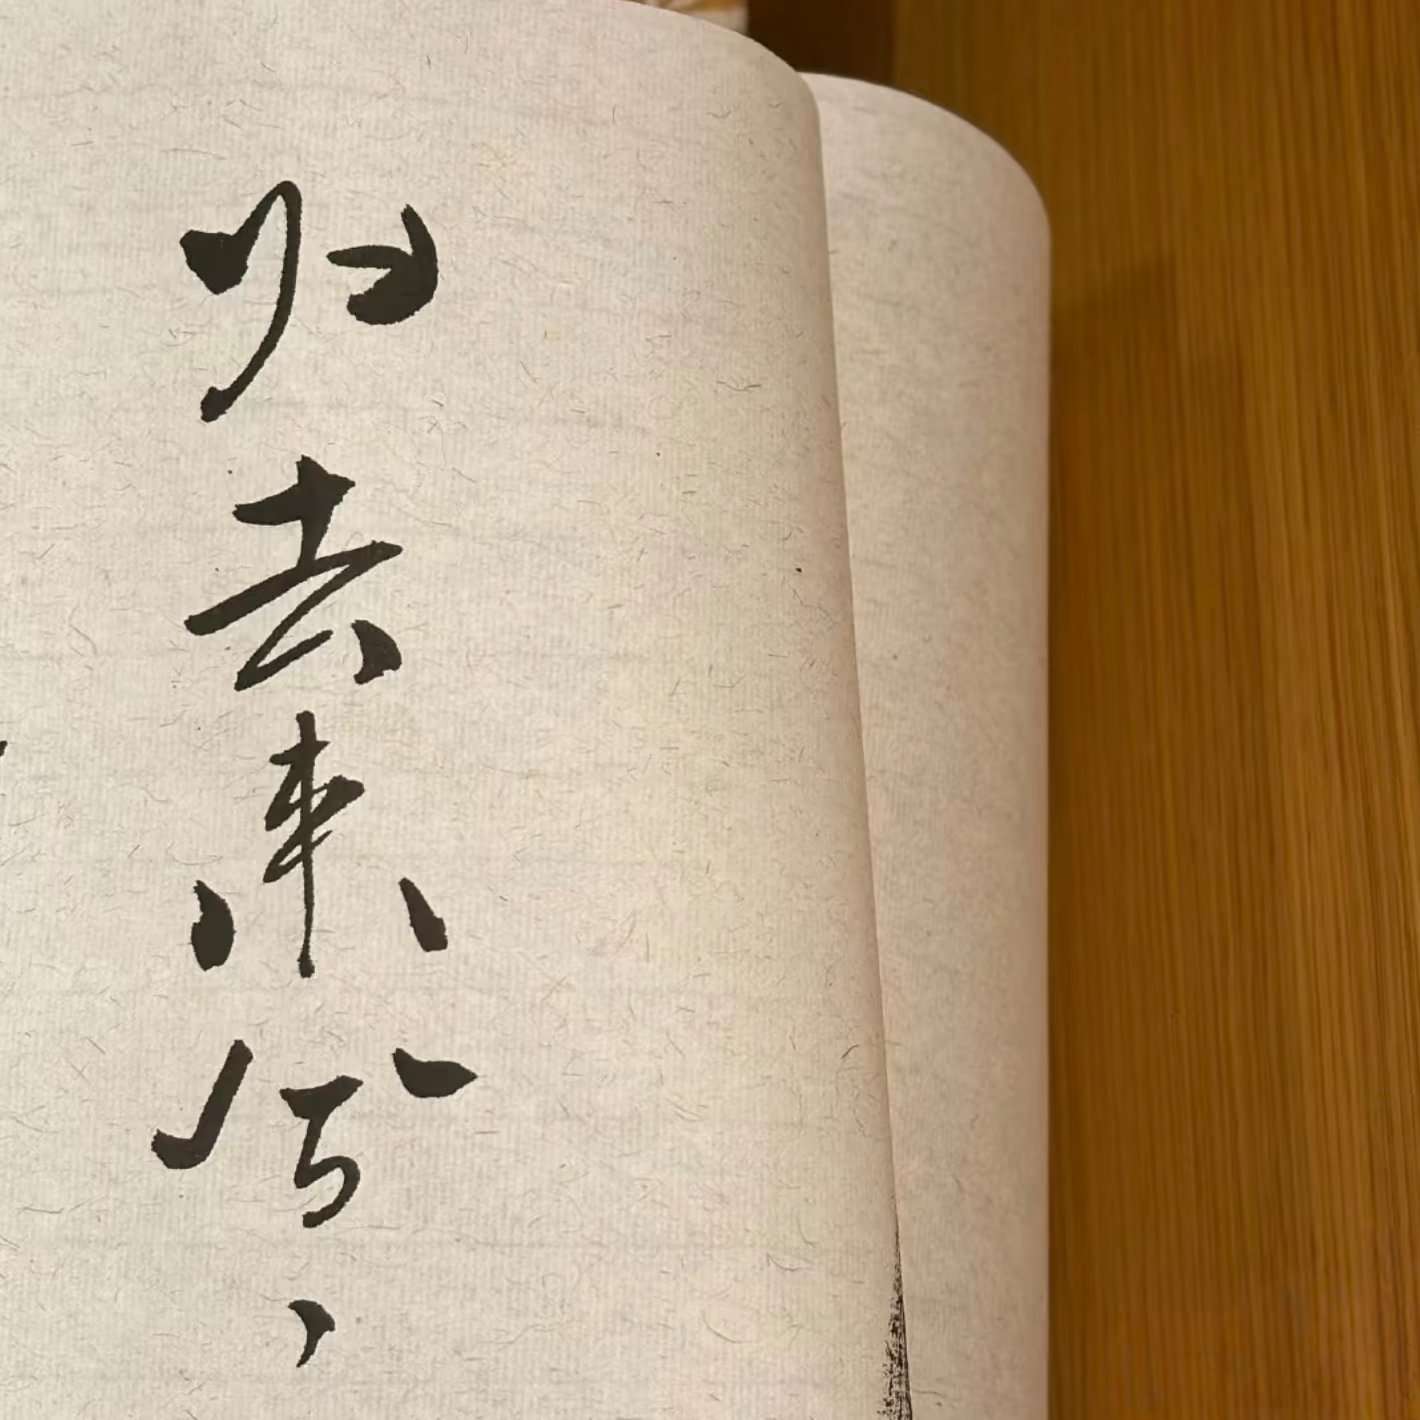 归去来兮、